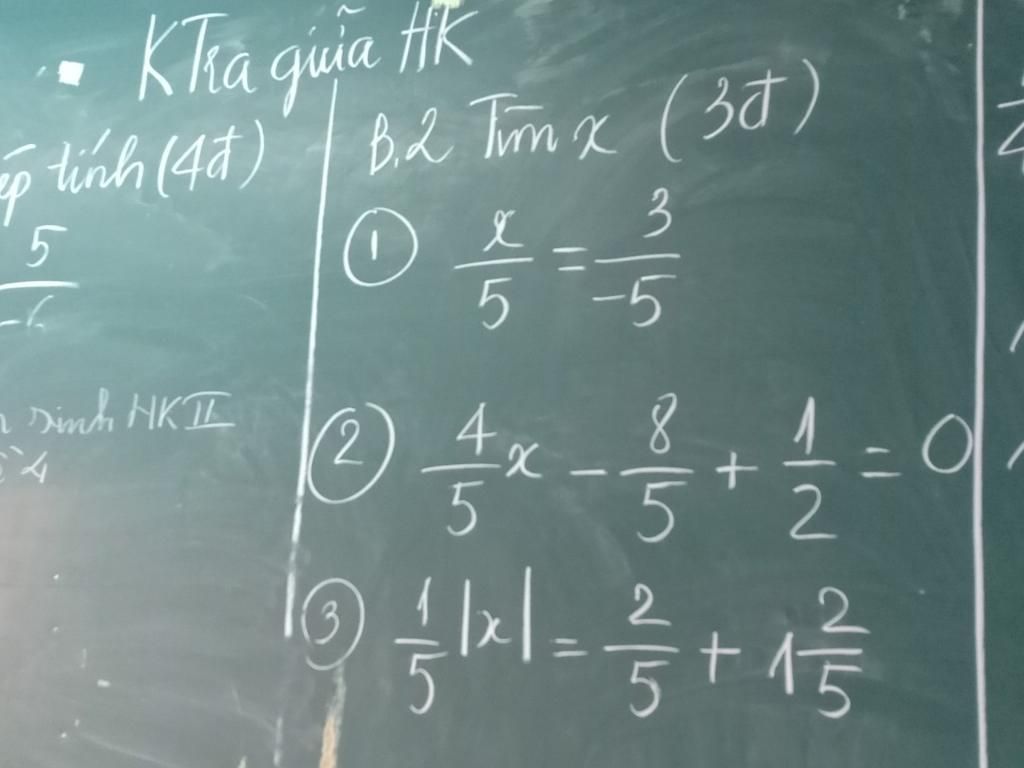 KTra giữa HK
ép tính (4đ)
5
sinh HK II
4
B.2 Tìm x (3đ)
① x/5 = 3/-5
② 4/5 x - 8/5 + 1/2 = 0
③ 1/5 |x| = 2/5 + 1 2/5